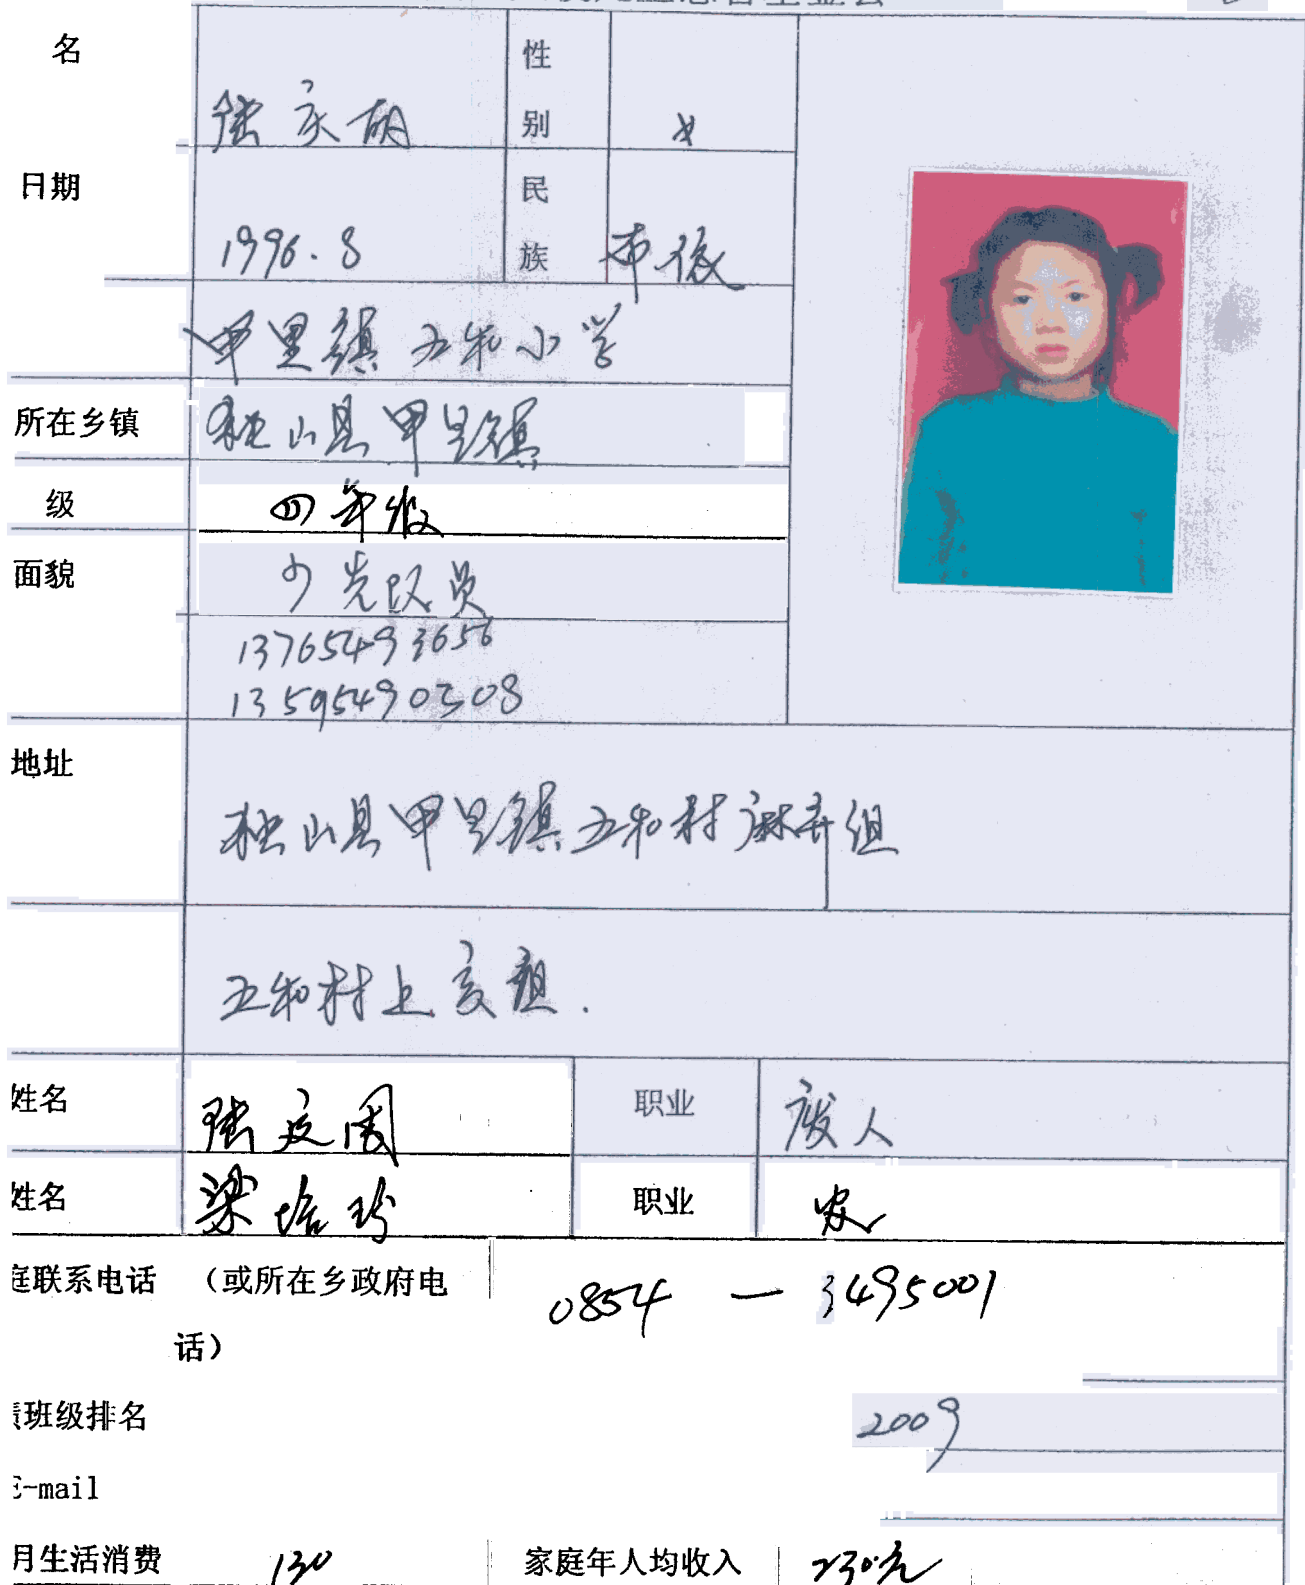 名 性
别 女
日期 民
1996.8 族 布依
甲里镇五和小学
所在乡镇 独山县甲里镇
级 四年级
面貌 少先队员
13765493656
13595490308
地址
独山县甲里镇五和村麻弄组
五和村上亥组.
姓名 陆文周 职业 废人
姓名 梁培玲 职业 农
庭联系电话 （或所在乡政府电 0854 — 3495001
话）
班级排名 2009
E-mail
月生活消费 130 家庭年人均收入 230元